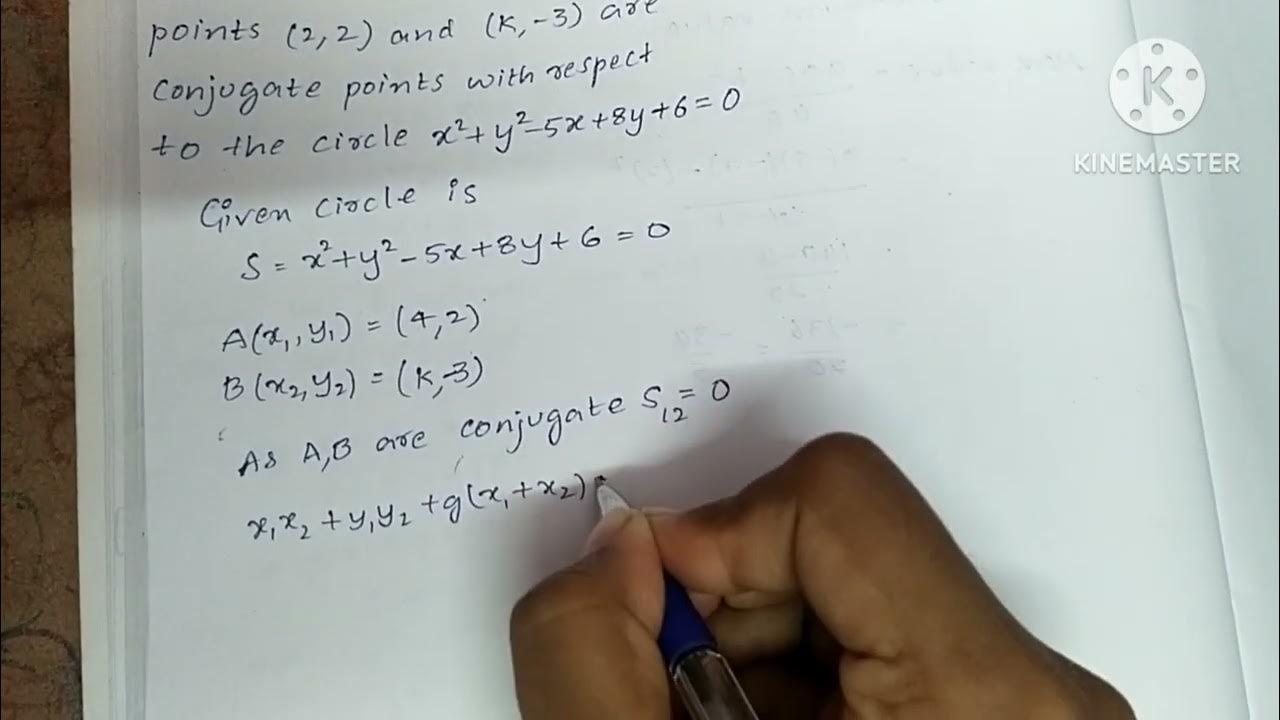 points (2,2) and (K,-3) are
conjugate points with respect
to the circle x²+y²-5x+8y+6=0
Given circle is
S = x²+y²-5x+8y+6=0
A(x₁,y₁) = (4,2)
B(x₂,y₂) = (K,-3)
As A,B are conjugate S₁₂=0
x₁x₂+y₁y₂+g(x₁+x₂)
K
KINEMASTER